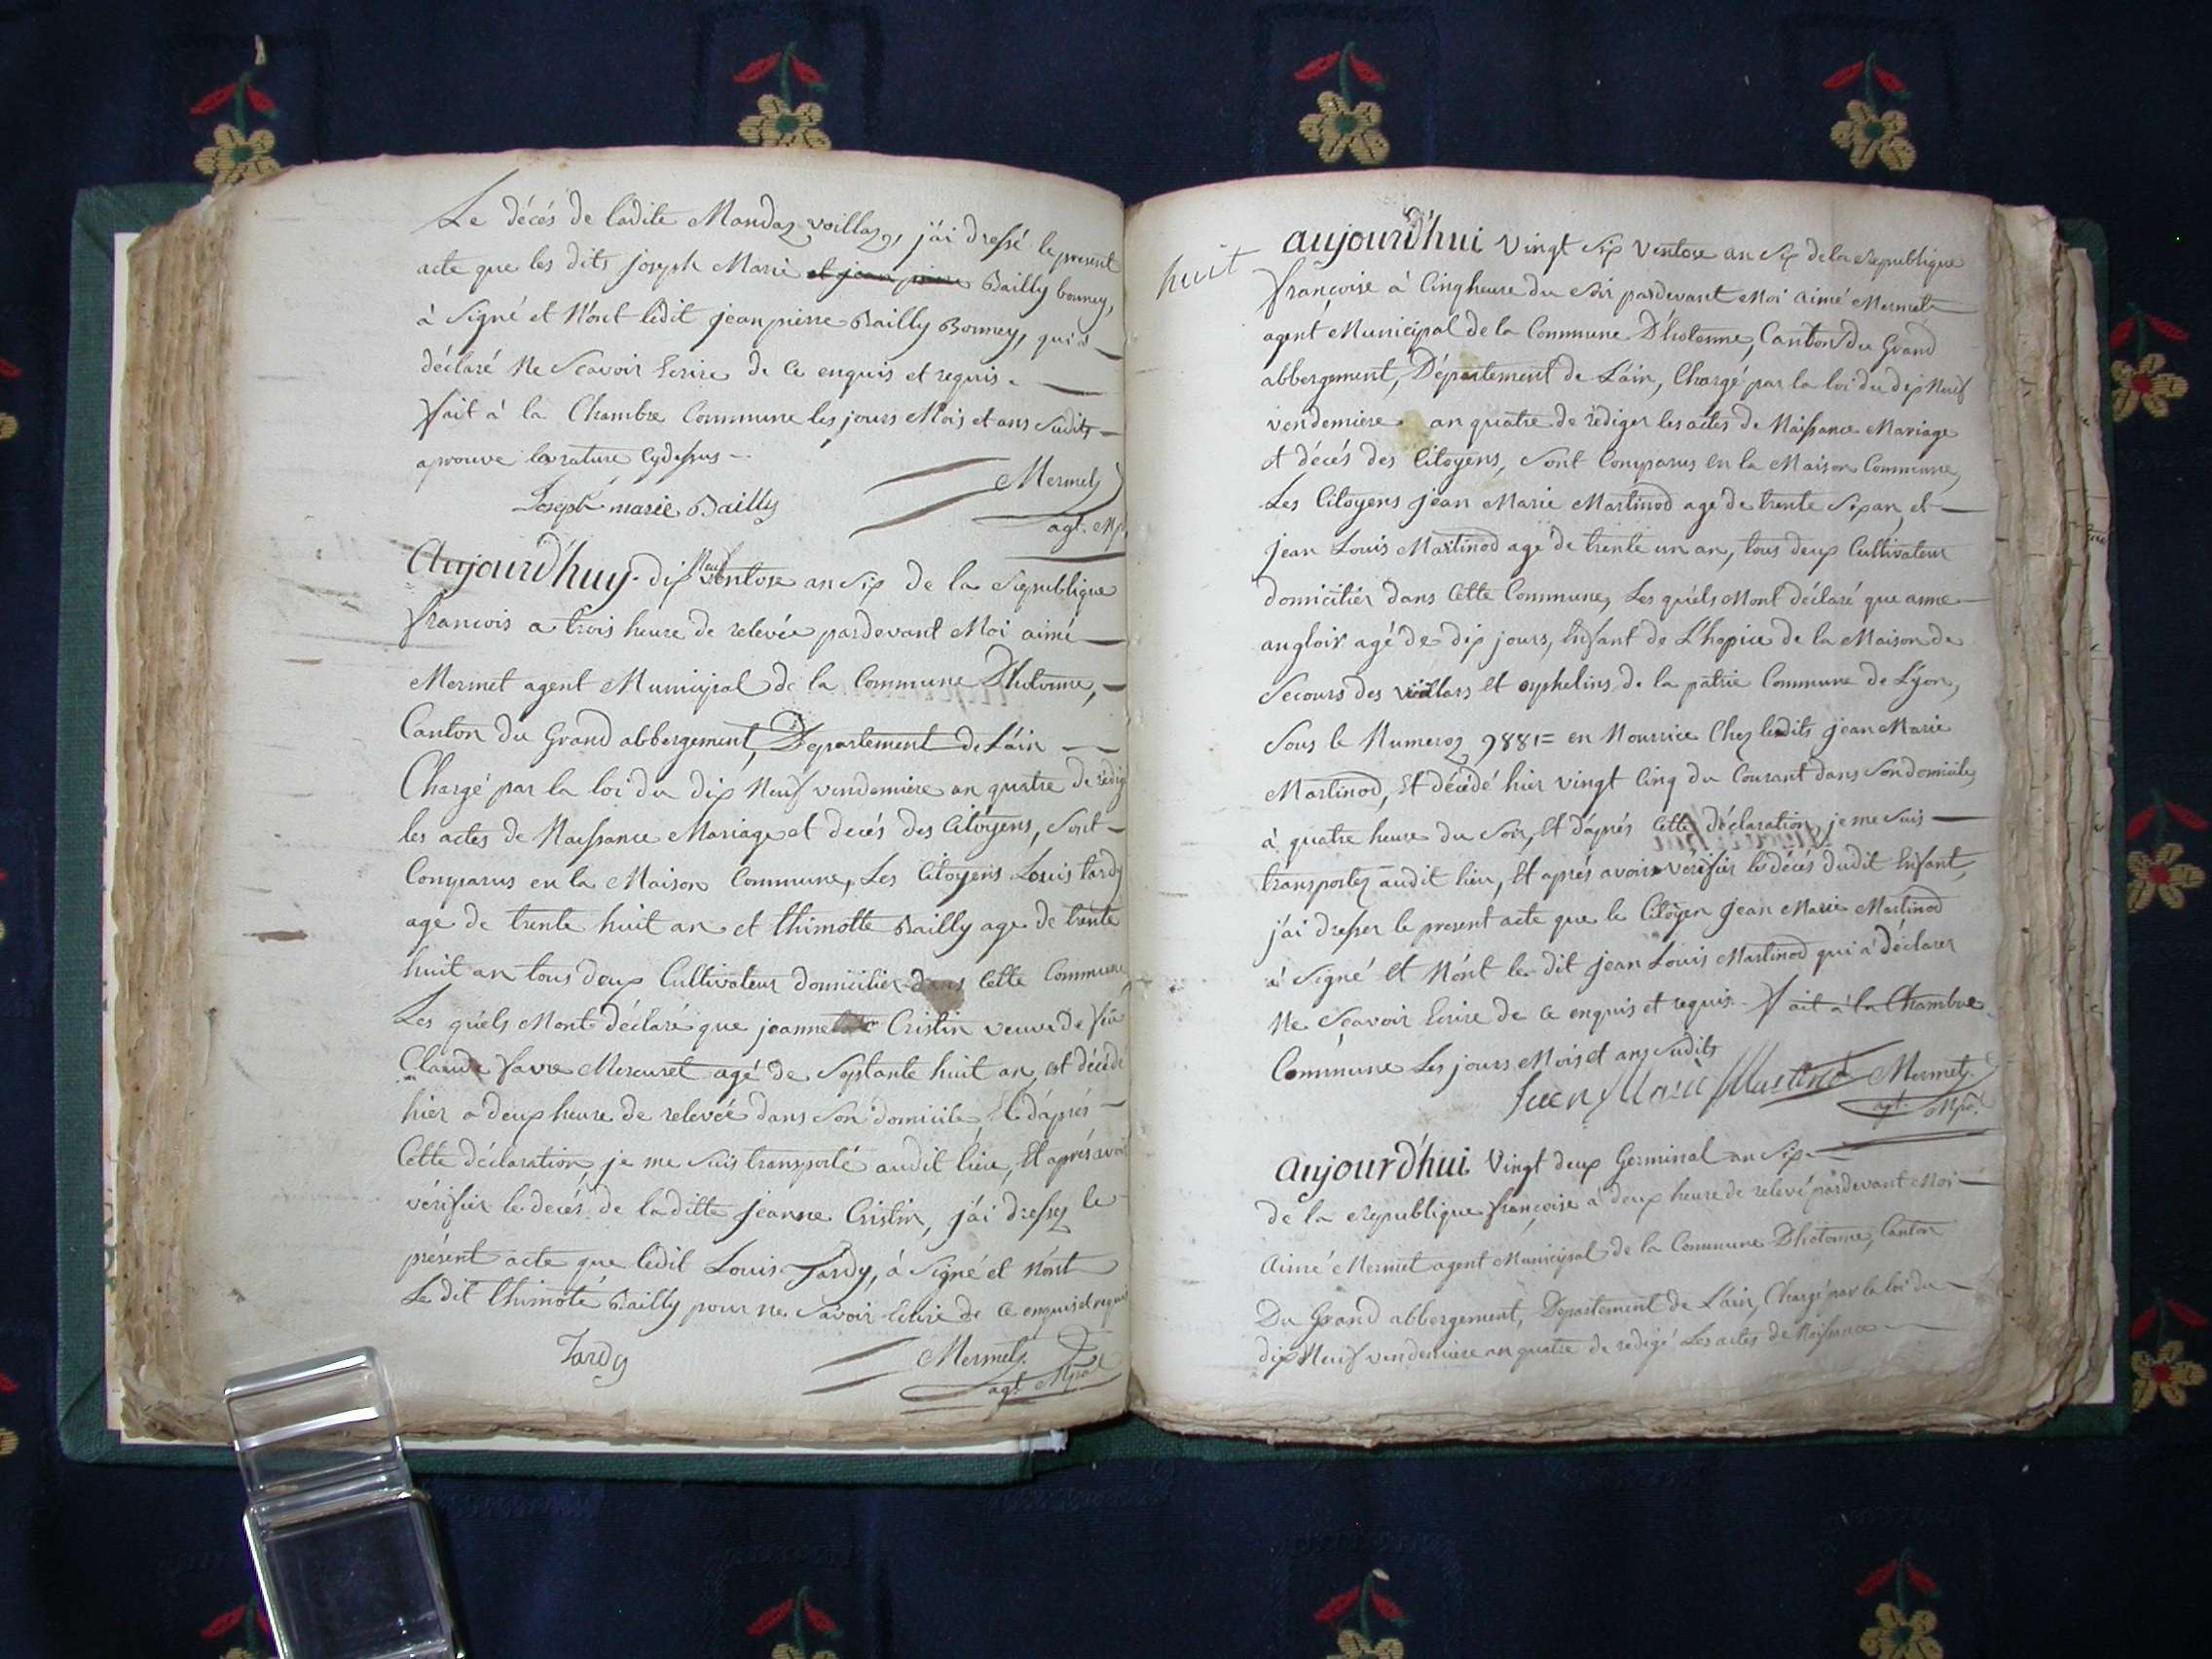 Le décés de ladite Mandaz voillaz, j'ai dressé le present
acte que les dits joseph Marie et jean pierre Bailly bonney,
à Signé et N'ont ledit jean pierre Bailly Bonney, qui a
déclaré Ne Scavoir Ecrire de Ce enquis et requis.
Fait à la Chambre Commune les jours Mois et ans Sudits
aprouve la rature Cy dessus
Joseph marie Bailly
Mermetz
agt. Mp.
Aujourd'huy dix Neuf ventose an Six de la Republique
francois a trois heure de relevée pardevant Moi aimé
Mermet agent Municipal de la Commune D'hotonne,
Canton du Grand abbergement, Departement de L'ain
Chargé par la loi du dix Neuf vendemiere an quatre de redig
les actes de Naissance Mariage et decés des Citoyens, Sont
Comparus en la Maison Commune, Les Citoyens Louis tardy
age de trente huit an et thimotte Bailly age de trente
huit an tous deux Cultivateur domicilier dans Cette Commune,
Les quéls Mont déclaré que jeanne Cristin veuve de feu
Claude favre Mercuret agé de Septante huit an, est décédé
hier a deux heure de relevée dans Son domicile, Et d'aprés
Cette déclaration, je me Suis transporté audit lieu, Et aprés avoir
vérifier le decés de laditte jeanne Cristin, j'ai dressez le
présent acte que ledit Louis Tardy, à Signé et N'ont
Le dit thimoté Bailly pour ne Savoir Ecrire de Ce enquis et requis
Tardy
Mermetz.
agt. Mpal
huit
aujourd'hui Vingt Six Ventose an Six de la Republique
françoise à Cinq heure du Soir pardevant Moi aimé Mermet
agent Municipal de la Commune D'hotonne, Canton du Grand
abbergement, Département de L'ain, Chargé par la loi du dix Neuf
vendemiere an quatre de rédiger les actes de Naissance Mariage
et décés des Citoyens, Sont Comparus en la Maison Commune,
Les Citoyens jean Marie Martinod agé de trente Six an, et
jean Louis Martinod agé de trente un an, tous deux Cultivateur
domicilier dans Cette Commune, Les quéls Mont déclaré que anne
angloix agé de dix jours, Enfant de L'hopice de la Maison de
Secours des viellars Et orphelins de la patrie Commune de Lyon,
Sous le Numeroz 9881= en Nourrice Chez ledits jean Marie
Martinod, Et décédé hier vingt Cinq du Courant dans Son domicile,
à quatre heure du Soir, Et d'aprés Cette déclaration, je me Suis
transportez audit lieu, Et aprés avoir vérifier le décés dudit Enfant,
j'ai dresser le present acte que le Citoyen jean Marie Martinod
a Signé Et N'ont le dit jean Louis Martinod qui à déclarer
Ne Sçavoir Ecrire de Ce enquis et requis. Fait à la Chambre
Commune Les jours Mois et ans Sudits
Jean Marie Martinod Mermetz.
agt. Mpal
aujourd'hui Vingt deux Germinal an Six
de la Republique françoise a deux heure de relevé pardevant Moi
aimé Mermet agent Municipal de la Commune D'hotonne, Canton
Du Grand abbergement, Departement de L'ain, Chargé par la loi du
dix Neuf vendemiere an quatre de redigé Les actes de Naissance